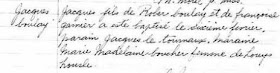 Jacques Jacques fils de Rober boulay et de françoise
boulay garnier a esté baptisé le dixième fevrier,
parain Jacques le tourneurs, maraine
Marie Madelaine boucher femme de Louys
houde